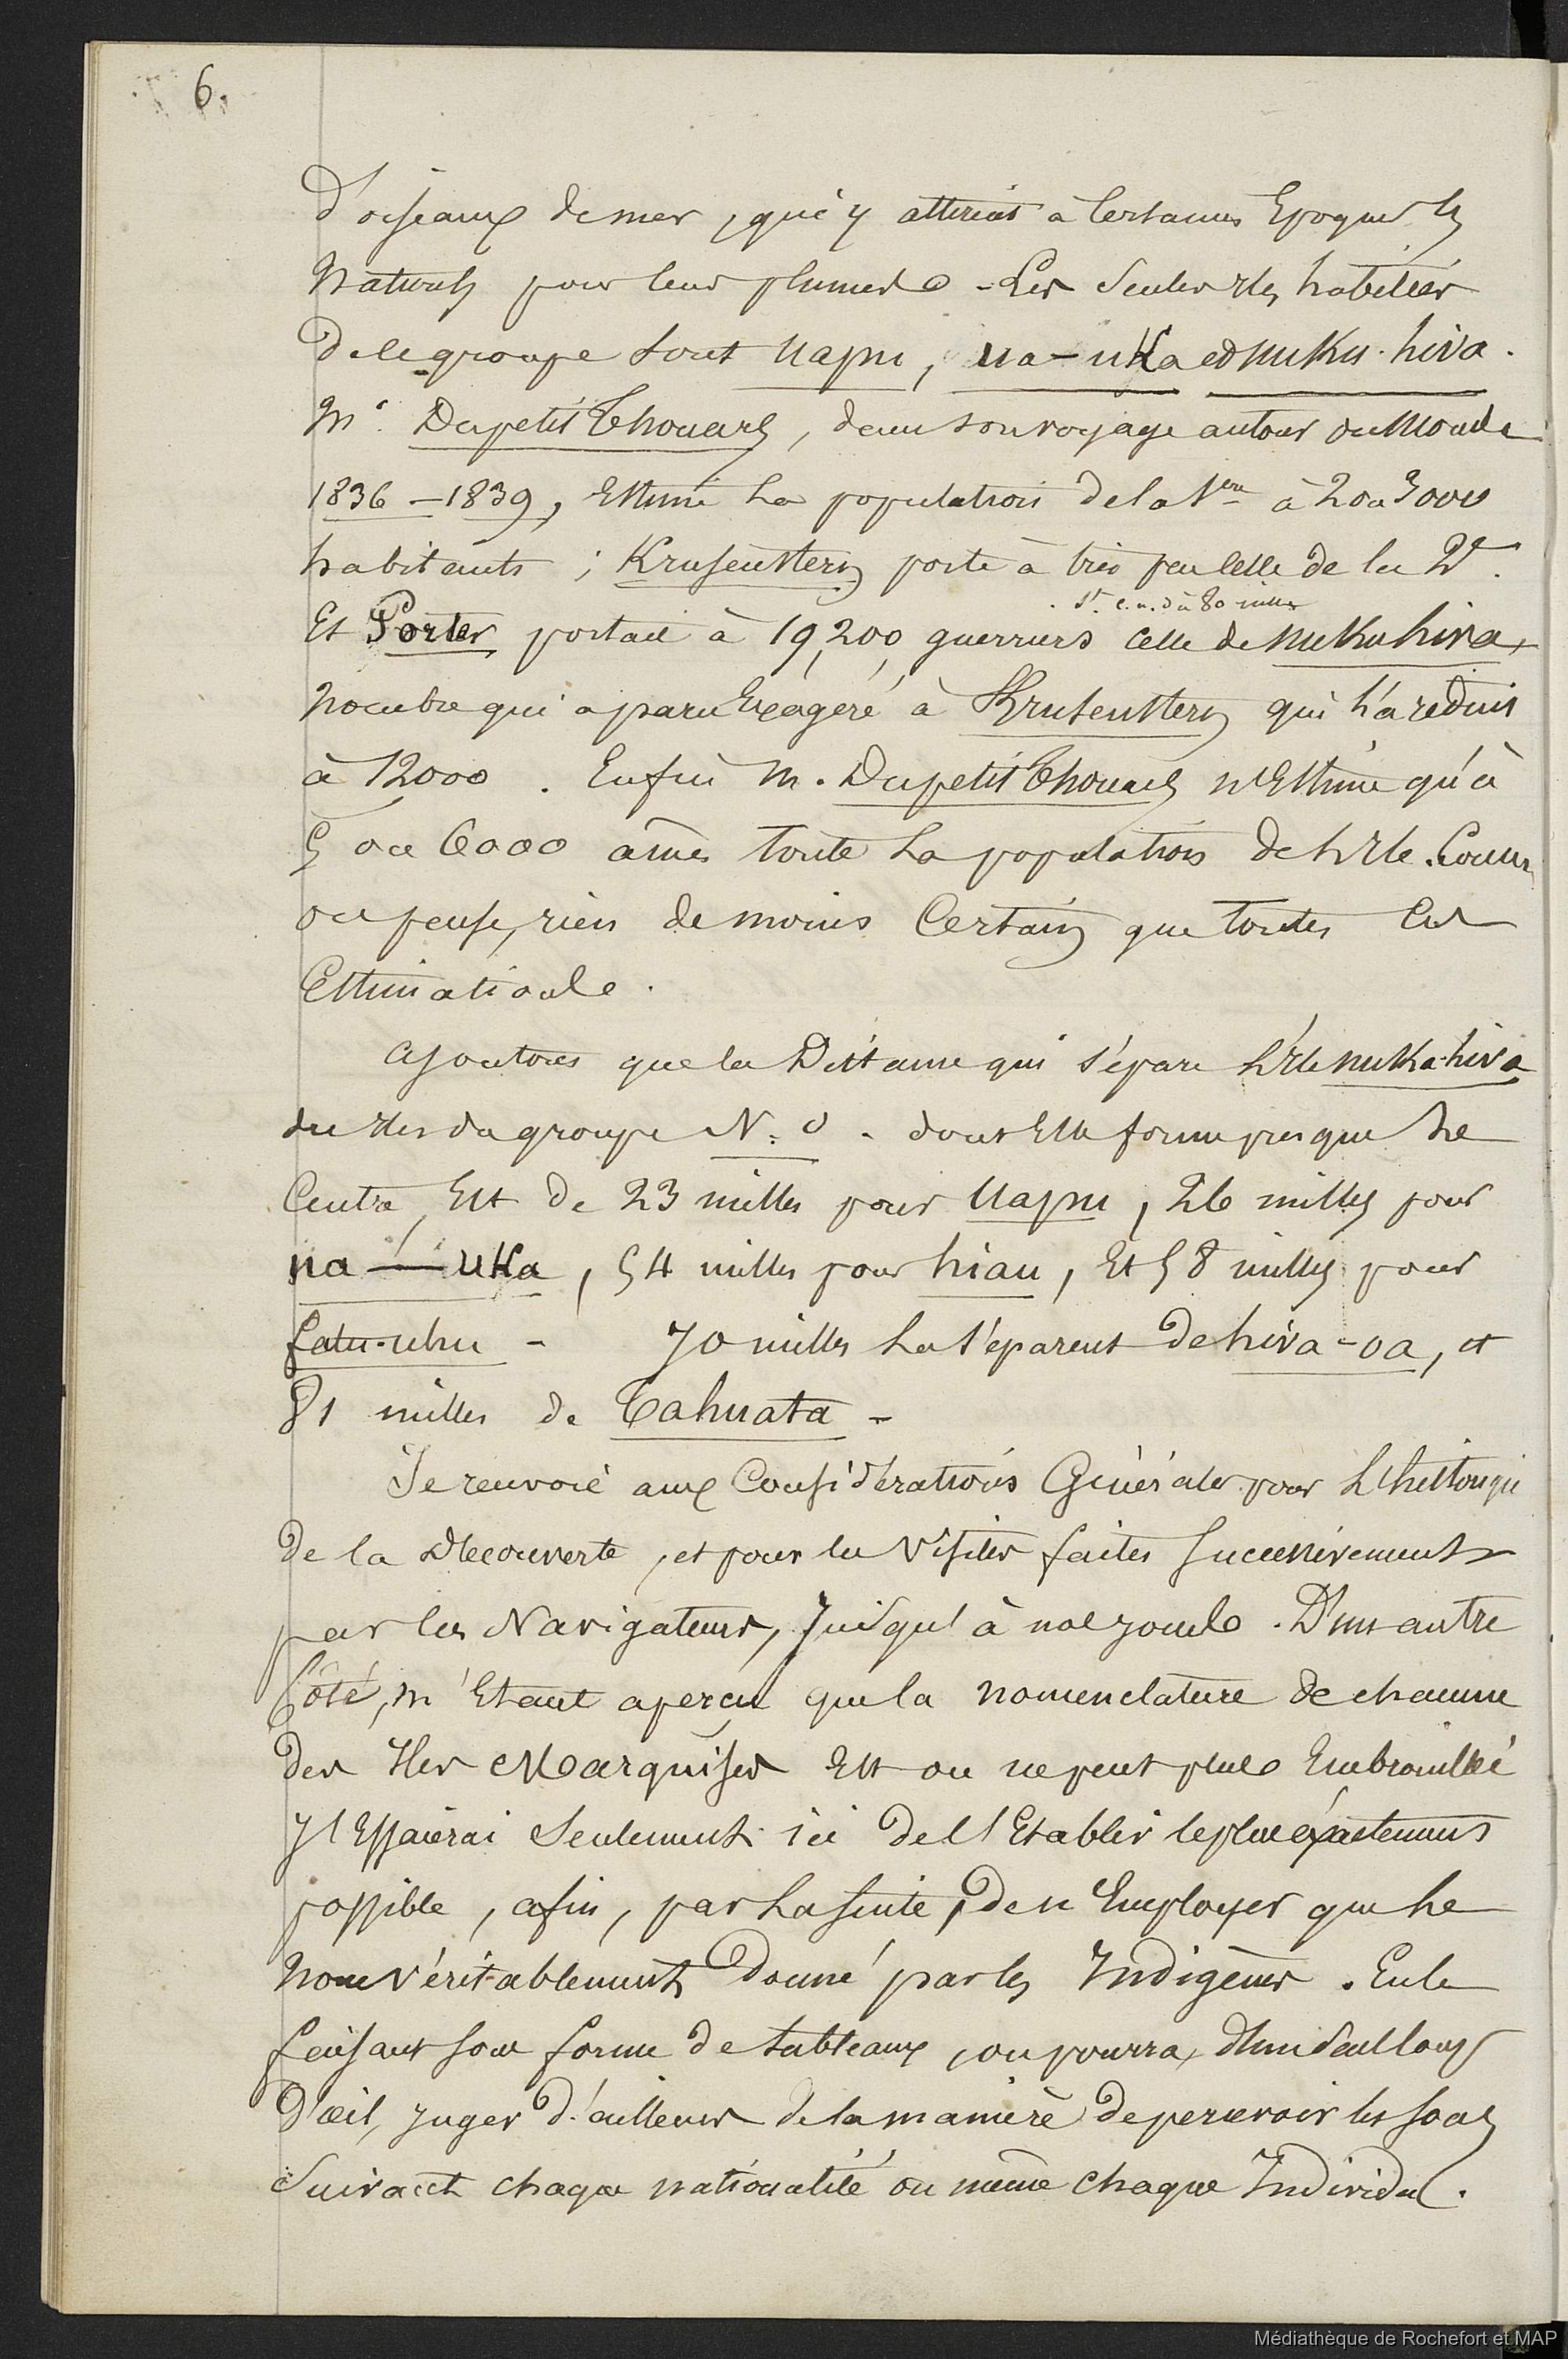 6.
d'oiseaux de mer, qui y attirent à certaines Epoques les
naturels pour leurs plumes. - Les seules Iles habitées
de ce groupe sont uapu, ua-uka et nuku-hiva.
Mr. Dupetit Thouars, dans son voyage autour du Monde
1836-1839, Estime la population de la 1ere à 2 ou 3000
habitants ; Krusenstern porte à très peu celle de la 2e.
St. c.a.d à 80 milles
Et Porter portait à 19,200 guerriers celle de nukuhiva,
nombre qui a paru Exagéré à Krusenstern qui l'a réduit
à 12000. Enfin M. Dupetit Thouars n'Estime qu'à
5 ou 6000 âmes toute la population de l'Ile. Comme
on pense, rien de moins Certain que toutes Ces
Estimations.
Ajoutons que la Distance qui sépare l'Ile nuka-hiva
des Iles du groupe N. O. dont Elle forme presque le
Centre, Est de 23 milles pour uapu, 26 milles pour
ua-uka, 54 milles pour hiau, Et 58 milles pour
fatu-uhu - 70 milles la séparent de hiva-oa, et
81 milles de Tahuata -
Je renvoie aux Considérations Générales pour l'historique
de la Découverte, et pour les Visites faites Successivement
par les Navigateurs, Jusqu'à nos jours. D'un autre
Côté, m'Etant aperçu que la nomenclature de chacune
des Iles Marquises Est on ne peut plus Embrouillée
J'Essaierai Seulement ici de l'Etablir le plus éxactement
possible, afin, par la suite, de n'Employer que le
nom véritablement Donné par les Indigènes. En le
faisant sous forme de tableaux, on pourra, d'un seul Coup
D'œil, Juger d'ailleurs de la manière de percevoir les sons
Suivant chaque nationalité ou même chaque Individu.
Médiathèque de Rochefort et MAP